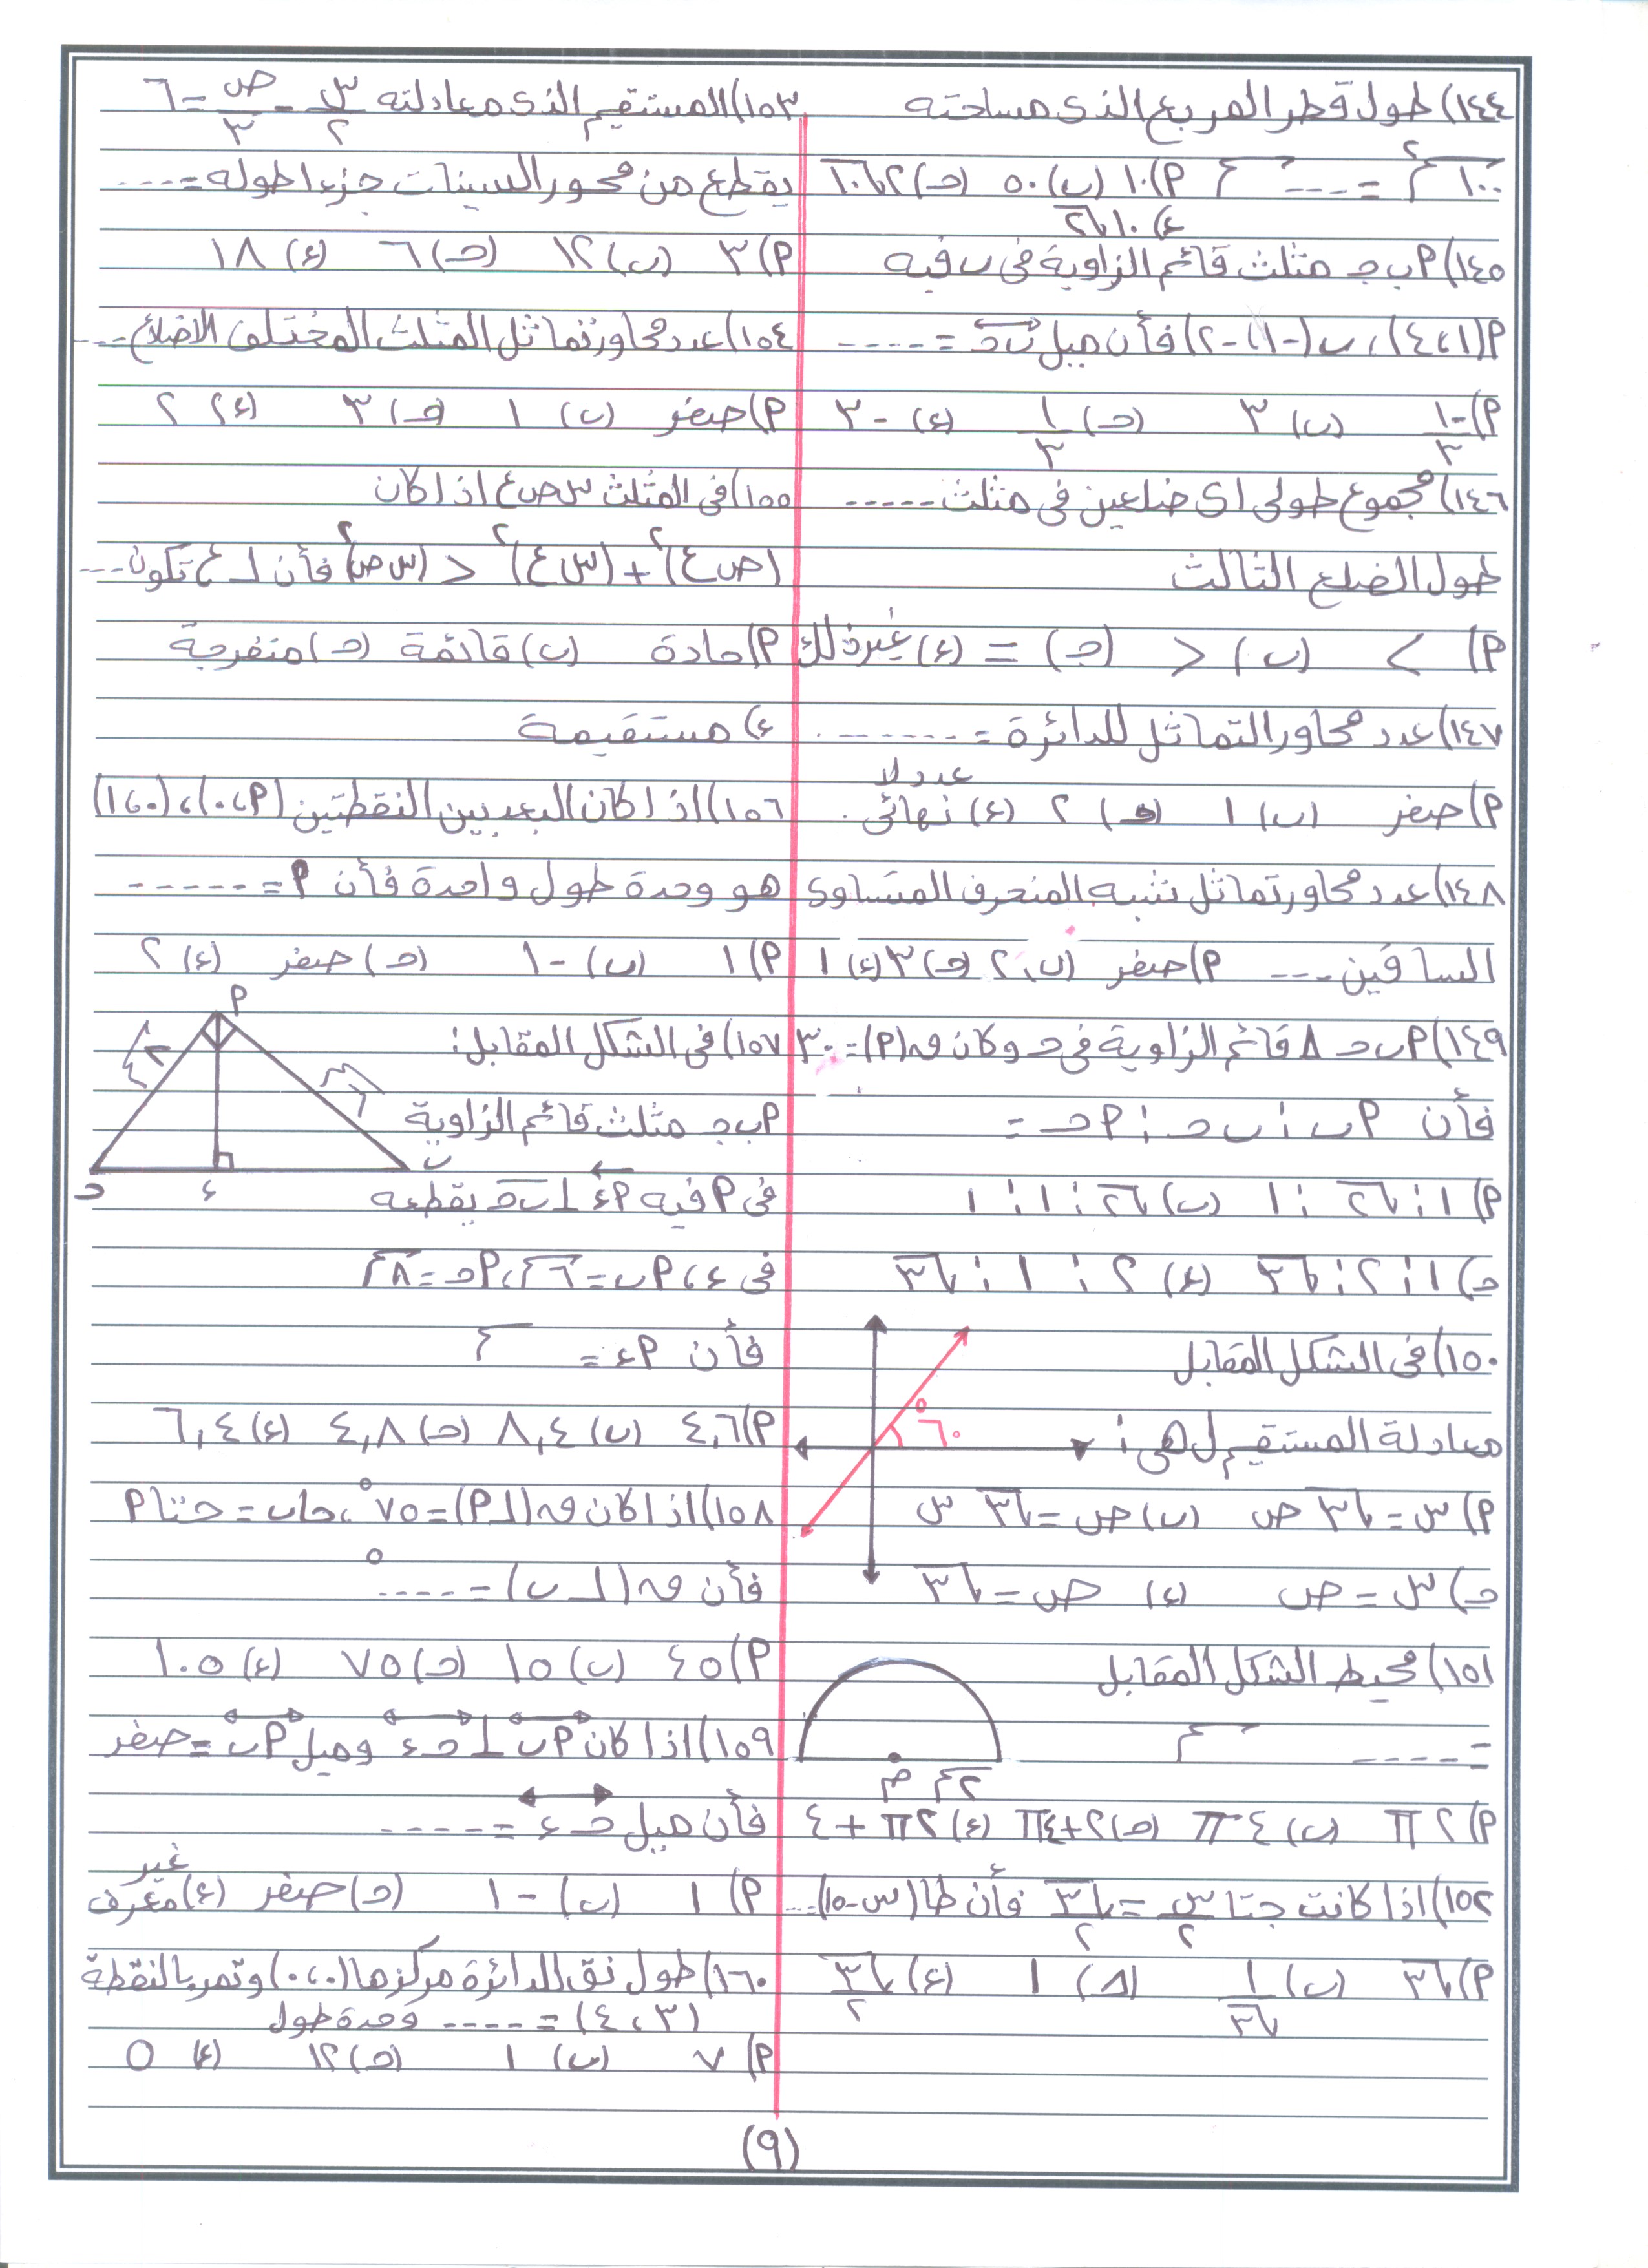 ١٤٤) طول قطر المربع الذى مساحته
١٠٠ سم٢ = ---- سم م) ١٠ (ب) ٥٠ (حـ) ٢√١٠
ء) ١٠√٢
١٤٥) م ب جـ مثلث قائم الزاوية فى ب فيه
م(١،٤)، ب(-١،-٢) فأن ميل ب حـ = ----
م) -١/٣ (ب) ٣ (حـ) ١/٣ (ء) -٣
١٤٦) مجموع طولى اى ضلعين فى مثلث -----
طول الضلع الثالث
م) > (ب) < (جـ) = (ء) غيرذلك
١٤٧) عدد محاور التماثل للدائرة = -------
م) صفر (ب) ١ (حـ) ٢ (ء) عدد لا نهائى
١٤٨) عدد محاور تماثل شبه المنحرف المتساوى
الساقين ---- م) صفر (ب) ٢ (حـ) ٣ (ء) ١
١٤٩) م ب حـ Δ قائم الزاوية فى حـ وكان ق(م) = ٣٠
فأن م ب : ب حـ : م حـ =
م) ١ : √٢ : ١ (ب) √٢ : ١ : ١
حـ) ١ : ٢ : √٣ (ء) ٢ : ١ : √٣
١٥٠) فى الشكل المقابل
٦٠°
معادلة المستقيم ل هى :
م) س = √٣ ص (ب) ص = √٣ س
حـ) س = ص (ء) ص = √٣
١٥١) محيط الشكل المقابل
= ---- سم
م ٢سم
م) ٢π (ب) ٤π (حـ) ٢+٤π (ء) ٢π+٤
١٥٢) اذا كانت جتا س/٢ = √٣/٢ فأن ظا(س-١٥) ---
م) √٣ (ب) ١/√٣ (Δ) ١ (ء) √٣/٢
١٥٣) المستقيم الذى معادلته س/٢ - ص/٣ = ٦
يقطع من محور السينات جزءا طوله = ----
م) ٣ (ب) ١٢ (حـ) ٦ (ء) ١٨
١٥٤) عدد محاور تماثل المثلث المختلف الاضلاع ---
م) صفر (ب) ١ (حـ) ٣ (ء) ٢
١٥٥) فى المثلث س ص ع اذا كان
(ص ع)٢ + (س ع)٢ > (س ص)٢ فأن ∠ ع تكون ---
م) حادة (ب) قائمة (حـ) منفرجة
ء) مستقيمة
١٥٦) اذا كان البعد بين النقطتين (م،٠)، (٠،١)
هو وحدة طول واحدة فأن م = -----
م) ١ (ب) -١ (حـ) صفر (ء) ٢
١٥٧) فى الشكل المقابل:
م
٨سم
٦سم
ب
ء
حـ
م ب جـ مثلث قائم الزاوية
فى م فيه م ء ⊥ ب حـ يقطعه
فى ء، م ب = ٦سم، م حـ = ٨سم
فأن م ء = سم
م) ٤,٦ (ب) ٨,٤ (حـ) ٤,٨ (ء) ٦,٤
١٥٨) اذا كان ق(∠ م) = ٧٥°، جا ب = جتا م
فأن ق(∠ ب) = ----°
م) ٤٥ (ب) ١٥ (حـ) ٧٥ (ء) ١٠٥
١٥٩) اذا كان م ب ⊥ حـ ء وميل م ب = صفر
فأن ميل حـ ء = ----
م) ١ (ب) -١ (حـ) صفر (ء) غير معرف
١٦٠) طول نق للدائرة مركزها (٠،٠) وتمر بالنقطة
(٣،٤) = ---- وحدة طول
م) ٧ (ب) ١ (حـ) ١٢ (ء) ٥
(٩)